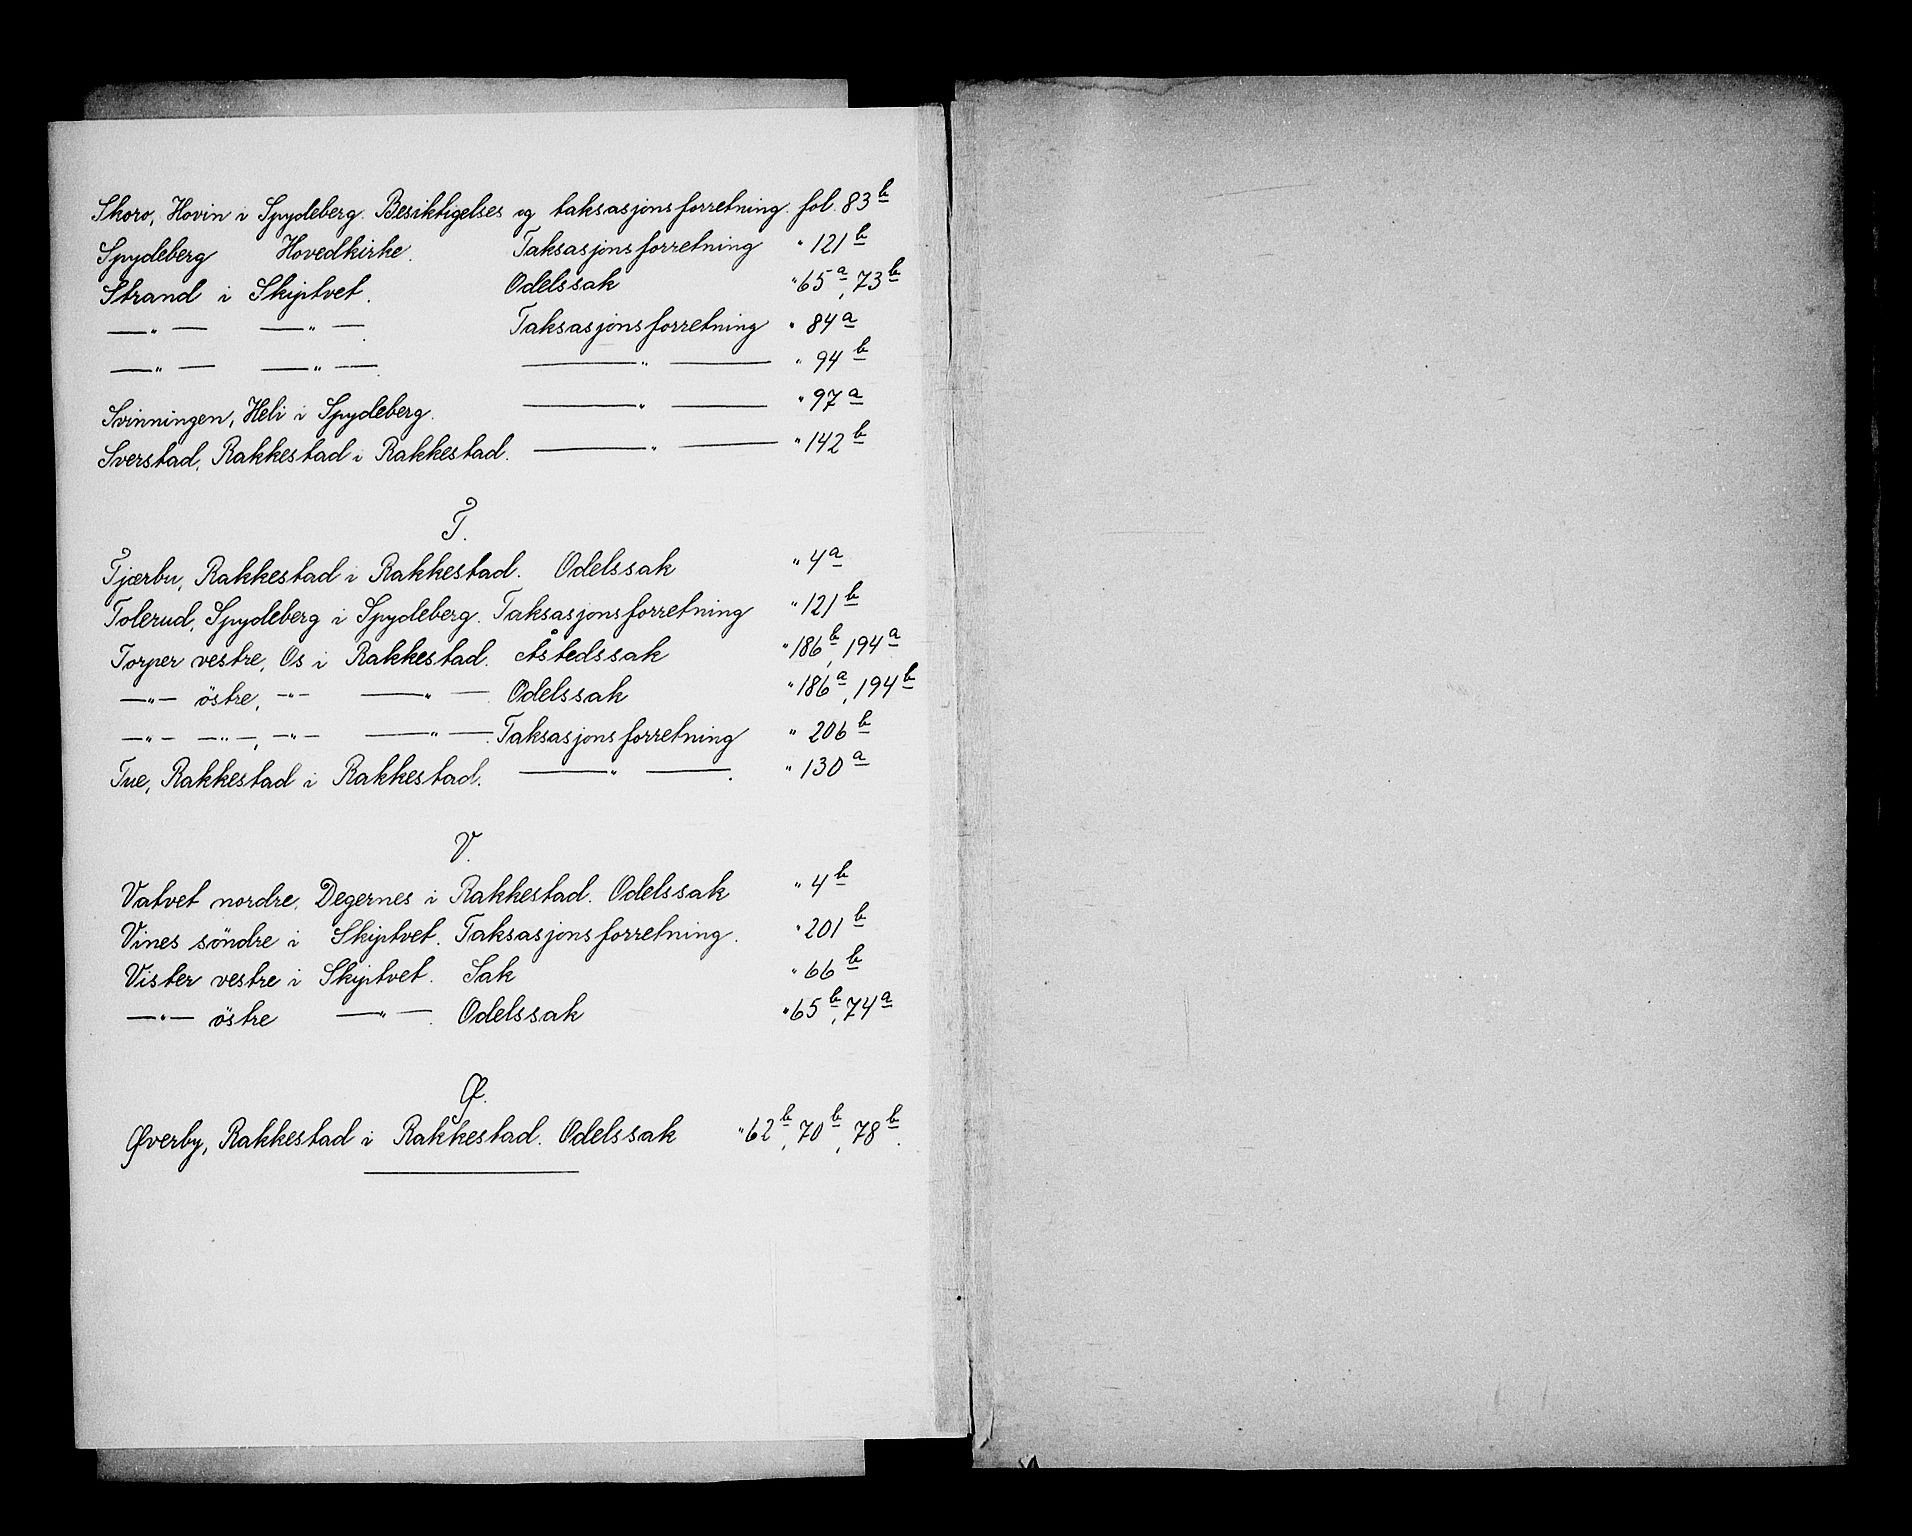 Skoro, Hovin i Spydeberg. Besiktigelses og taksasjonsforretning. fol. 83 b
Spydeberg Hovedkirke. Taksasjonsforretning " 121 b
Strand i Skiptvet. Odelssak " 65 a, 73 b
—"— —"—. Taksasjonsforretning " 84 a
—"— —"—. —"— " 94 b
Svinningen, Heli i Spydeberg. —"— " 97 a
Sverstad, Rakkestad i Rakkestad. —"— " 142 b
T.
Tjærbu, Rakkestad i Rakkestad. Odelssak " 4 a
Tolerud, Spydeberg i Spydeberg. Taksasjonsforretning " 121 b
Torper vestre, Os i Rakkestad. Åstedssak " 186 b, 194 a
—"— östre, —"— —"— Odelssak " 186 a, 194 b
—"— —"—, —"— —"—. Taksasjonsforretning " 206 b
Tue, Rakkestad i Rakkestad. —"—. " 130 a
V.
Vatvet nordre, Degernes i Rakkestad. Odelssak " 4 b
Vines söndre i Skiptvet. Taksasjonsforretning. " 201 b
Vister vestre i Skiptvet. Sak " 66 b
—"— östre —"—. Odelssak " 65 b, 74 a
Ø.
Øverby, Rakkestad i Rakkestad. Odelssak " 62 b, 70 b, 78 b.